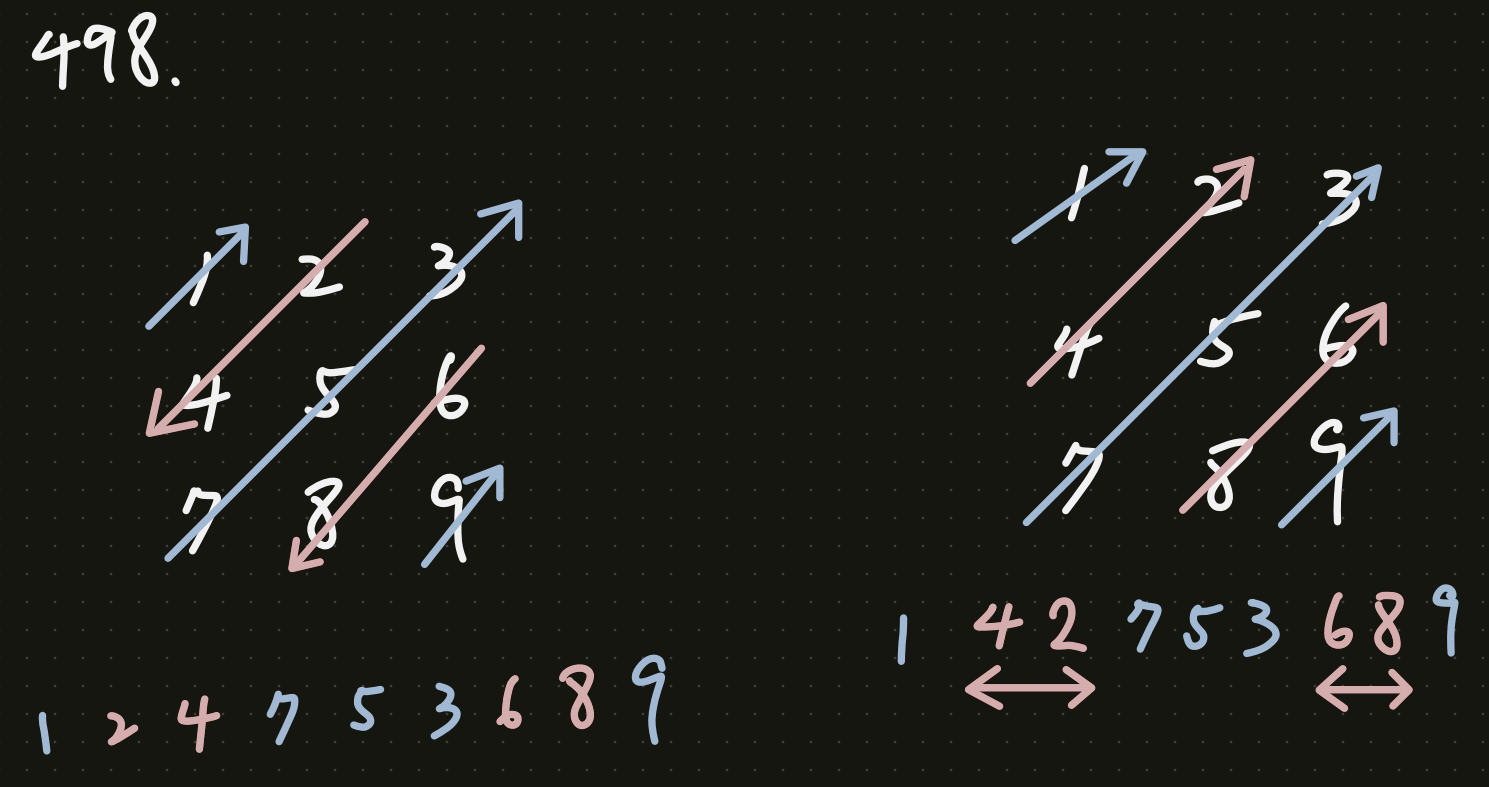 498.
1 2 3
4 5 6
7 8 9
1 2 4 7 5 3 6 8 9
1 2 3
4 5 6
7 8 9
1 4 2 7 5 3 6 8 9